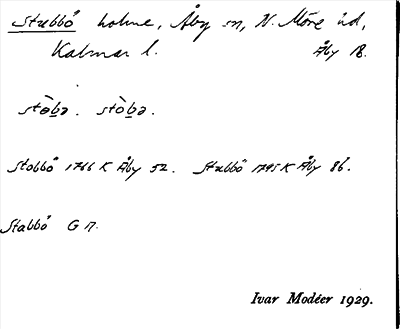 Stubbö holme, Åby sn, N. Möre hd,
Kalmar l. Åby 18.
stəb̲ə. stòb̲ə.
Stobbö 1766 K Åby 52. Stubbö 1795 K Åby 86.
Stabbö G 17.
Ivar Modéer 1929.